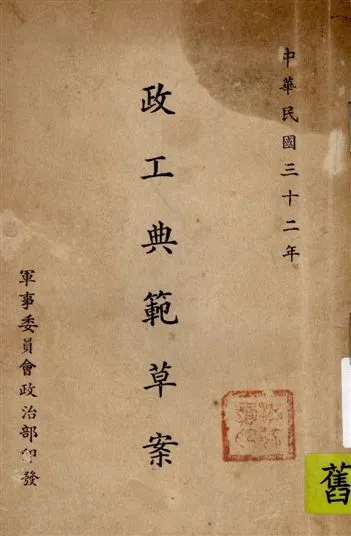 中華民國三十二年
政工典範草案
軍事委員會政治部印發
舊